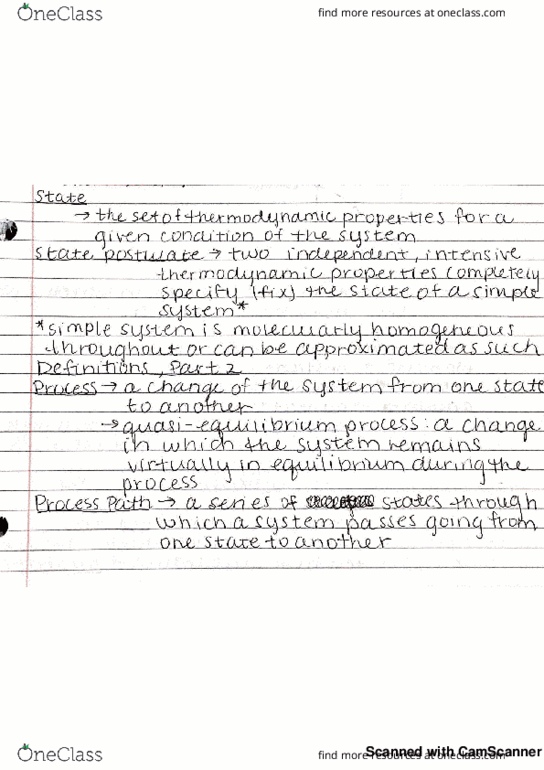 OneClass
find more resources at oneclass.com
State
→ the set of thermodynamic properties for a
given condition of the system
State postulate → two independent, intensive
thermodynamic properties completely
specify (fix) the state of a simple
system*
*simple system is molecularly homogeneous
throughout or can be approximated as such
Definitions, Part 2
Process → a change of the system from one state
to another
→ quasi-equilibrium process: a change
in which the system remains
virtually in equilibrium during the
process
Process Path → a series of states through
which a system passes going from
one state to another
OneClass
find more resources at oneclass.com
Scanned with CamScanner